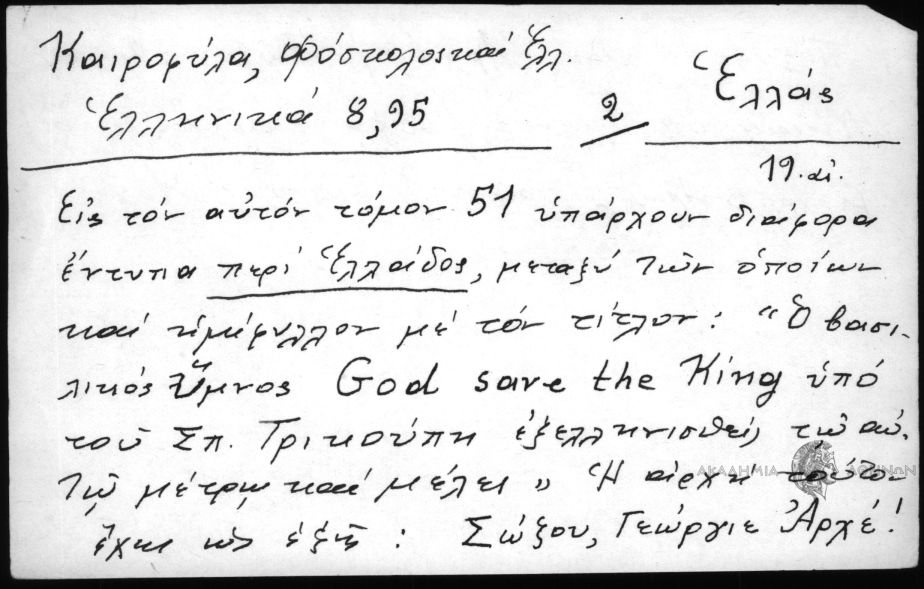 Καιροφύλα, Φόσκολος καί Ἑλλ.
Ἑλληνικά 8,95
2
Ἑλλάς
19. αἰ.
Εἰς τόν αὐτόν τόμον 51 ὑπάρχουν διάφορα
ἔντυπα περί Ἑλλάδος, μεταξύ τῶν ὁποίων
καί ἡμίφυλλον μέ τόν τίτλον: "Ὁ βασι-
λικός Ὕμνος God save the King ὑπό
τοῦ Σπ. Τρικούπη ἐξελληνισθείς τῷ αὐ-
τῷ μέτρῳ καί μέλει" Ἡ ἀρχή τούτου
ἔχει ὡς ἑξῆς: Σώζου, Γεώργιε Ἀρχέ!
ΑΚΑΔΗΜΙΑ ΑΘΗΝΩΝ